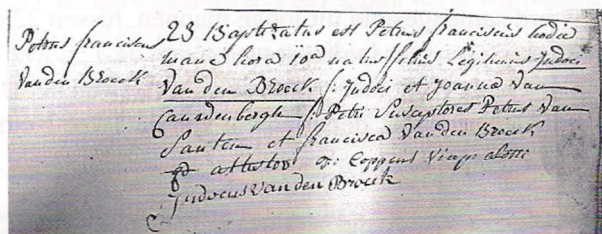 Petrus franciscus
Vanden Broeck
23 Baptizatus est Petrus franciscus hodie
mane hora 10a natus filius Legitimus Judoci
Van den Broeck f: Judoci et Joanna Van
Caudenbergh f: Petri Susceptores Petrus Van
Santen et francisca Vanden Broeck
attestor F: Coppens
Judocus Van den Broeck